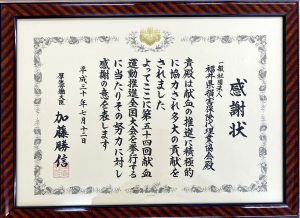 感謝状
一般社団法人
福井県損害保険代理業協会殿
貴殿は献血の推進に積極的
に協力され多大の貢献を
されました
よってここに第五十四回献血
運動推進全国大会を挙行する
に当たりその努力に対し
感謝の意を表します
平成三十年七月十二日
厚生労働大臣
加藤勝信